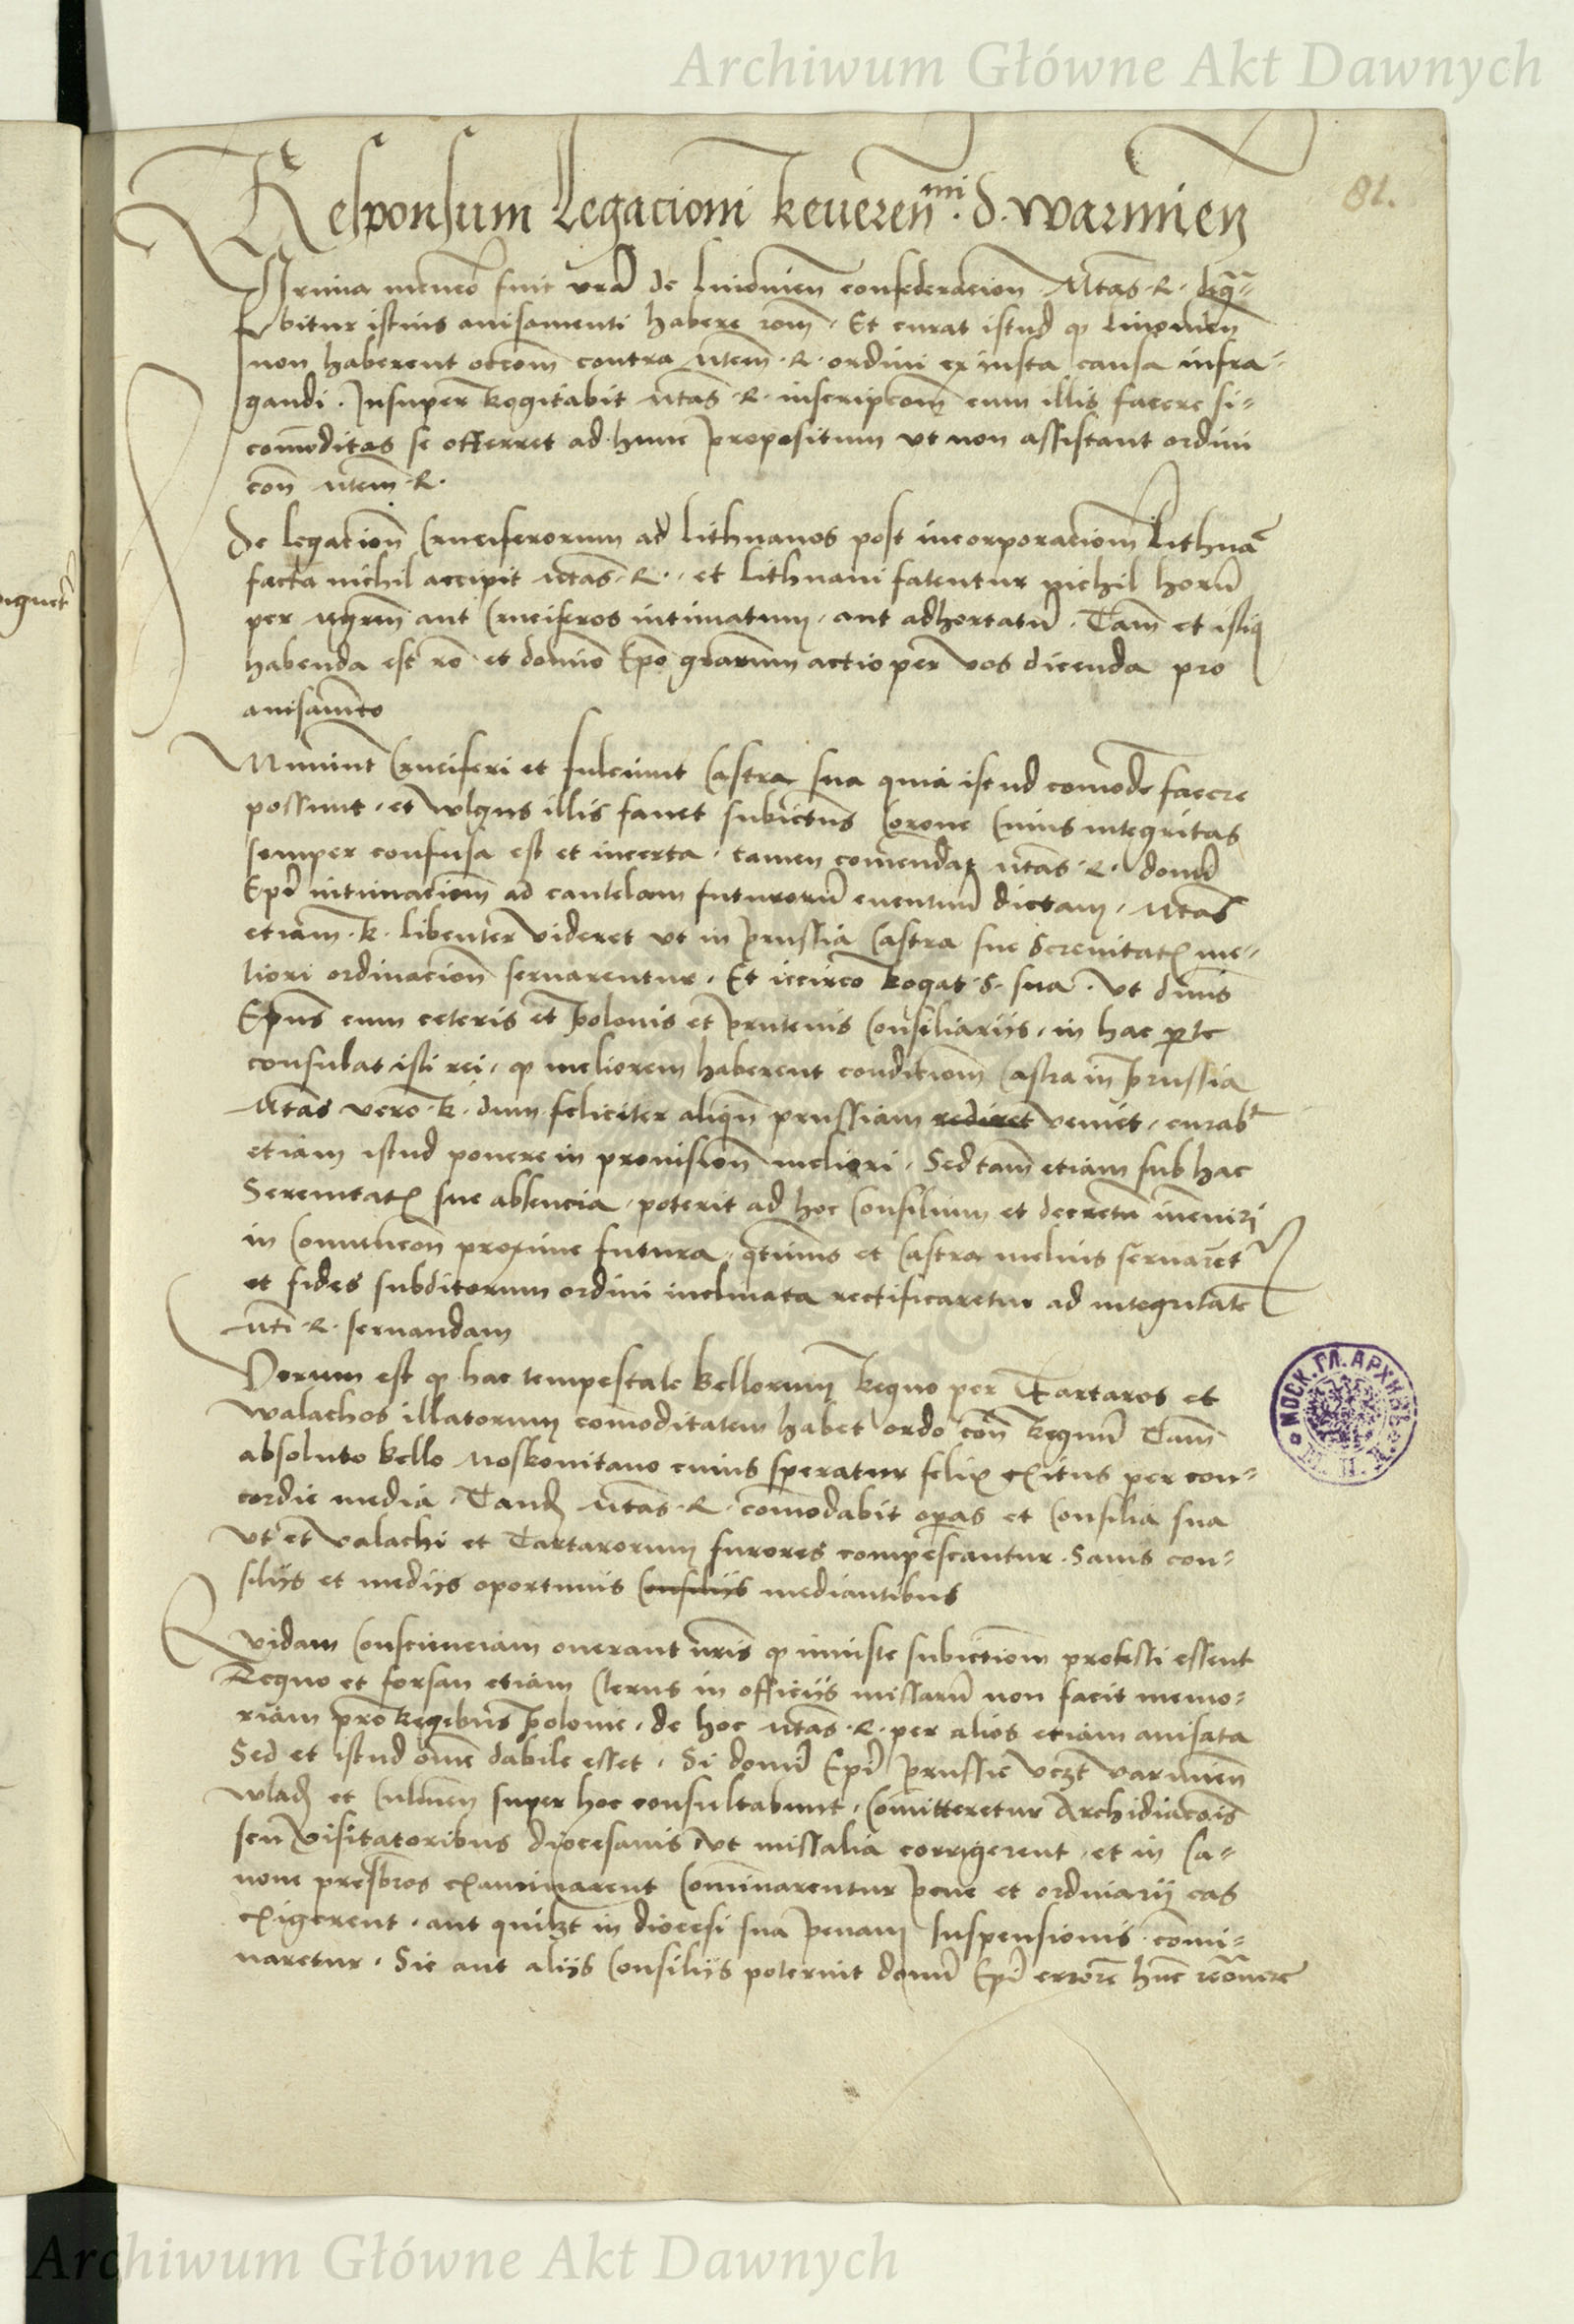 Archiwum Główne Akt Dawnych
81.
Responsum Legacioni Reveren^mi. d. Warmien
Prima mencio fuit vestra de Livonien confederacion Mtas R.
bitur istius avisamenti habere rom. Et curat istud q Livonien
non haberent occom contra Mtem R. ordini ex iusta causa suffra-
gandi. Insuper Cogitabit Mtas R. inscripcom cum illis facere si
comoditas se offerret ad hunc propositum ut non assistant ordini
con Mtem R.
De legacion Cruciferorum ad Lithuanos post incorporaciom Lithua
facta nichil accipit Mtas R. et Lithuani fatentur nichil horu
per Mgrm aut Cruciferos intimatum, aut adhortatu. Tam et istiq
habenda est ro et domio Epo graru actio per vos dicenda pro
avisameto
Muniunt Cruciferi et fulciunt Castra sua quia istud comode facere
possunt, et wlgus illis favet subiectus Corone Cuius integritas
semper confusa est et incerta, tamen comendat Mtas R. domi
Epi intimaciom ad cautelam futuroru eventuu dictam, Mtas
etiam R. libenter videret ut in Prussia Castra sue Serenitatis me-
liori ordinacion servarentur. Et iccirco Rogat S. sua. ut dnus
Epus cum ceteris et Polonis et Prutenis Consiliariis, in hac pte
consulat isti rei, q meliorem haberent condiciom Castra in Prussia
Mtas vero R. dum feliciter aliqn prussiam rediret veniet, curabt
etiam istud ponere in provision meliori. Sed tam etiam sub hac
Serenitatis sue absencia, poterit ad hoc Consilium et decretu inveniri
in Convencon proxime futura, qtinus et Castra melius servaret
et fides subditorum ordini inclinata rectificaretur ad integritate
Mti R. servandam
Verum est q hac tempestate bellorum Regno per Tartaros et
Walachos illatorum comoditatem habet ordo con Regnu Tam
absoluto bello Moskovitano cuius speratur felix exitus per con-
cordie media. Tand Mtas R. comodabit opas et Consilia sua
ut et Valachi et Tartarorum furores compescantur. Sanis con-
siliis et mediis oportunis Consiliis mediantibus
Quidam Conscienciam onerant viris q iniuste subiectiom professi essent
Regno et forsan etiam Clerus in officiis missaru non facit memo-
riam pro Regibus Polonie, de hoc Mtas R. per alios etiam avisata
Sed et istud ome dabile esset. Si domi Epi Prussie vczt Varmien
Wlad et Culmen super hoc consultabunt, Comitteretur Archidiacois
seu Visitatoribus diocesanis ut missalia corrigerent, et in Ca-
none presbros examinarent Cominarentur pene et ordinarii eas
exigerent, aut quilzt in diocesi sua penam Suspensionis comi-
naretur. Sic aut aliis Consiliis poterunt domi Epi errore hunc removere
МОСК. ГЛ. АРХИВЪ
Archiwum Główne Akt Dawnych